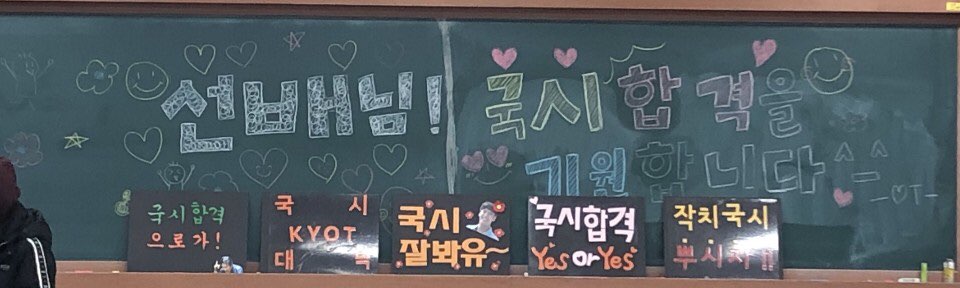 선배님! 국시합격을
기원합니다 ^_^
국시합격
으로가!
국 시
KYOT
대 박
국시
잘봐유~
국시합격
Yes or Yes
작치국시
뿌시자!!